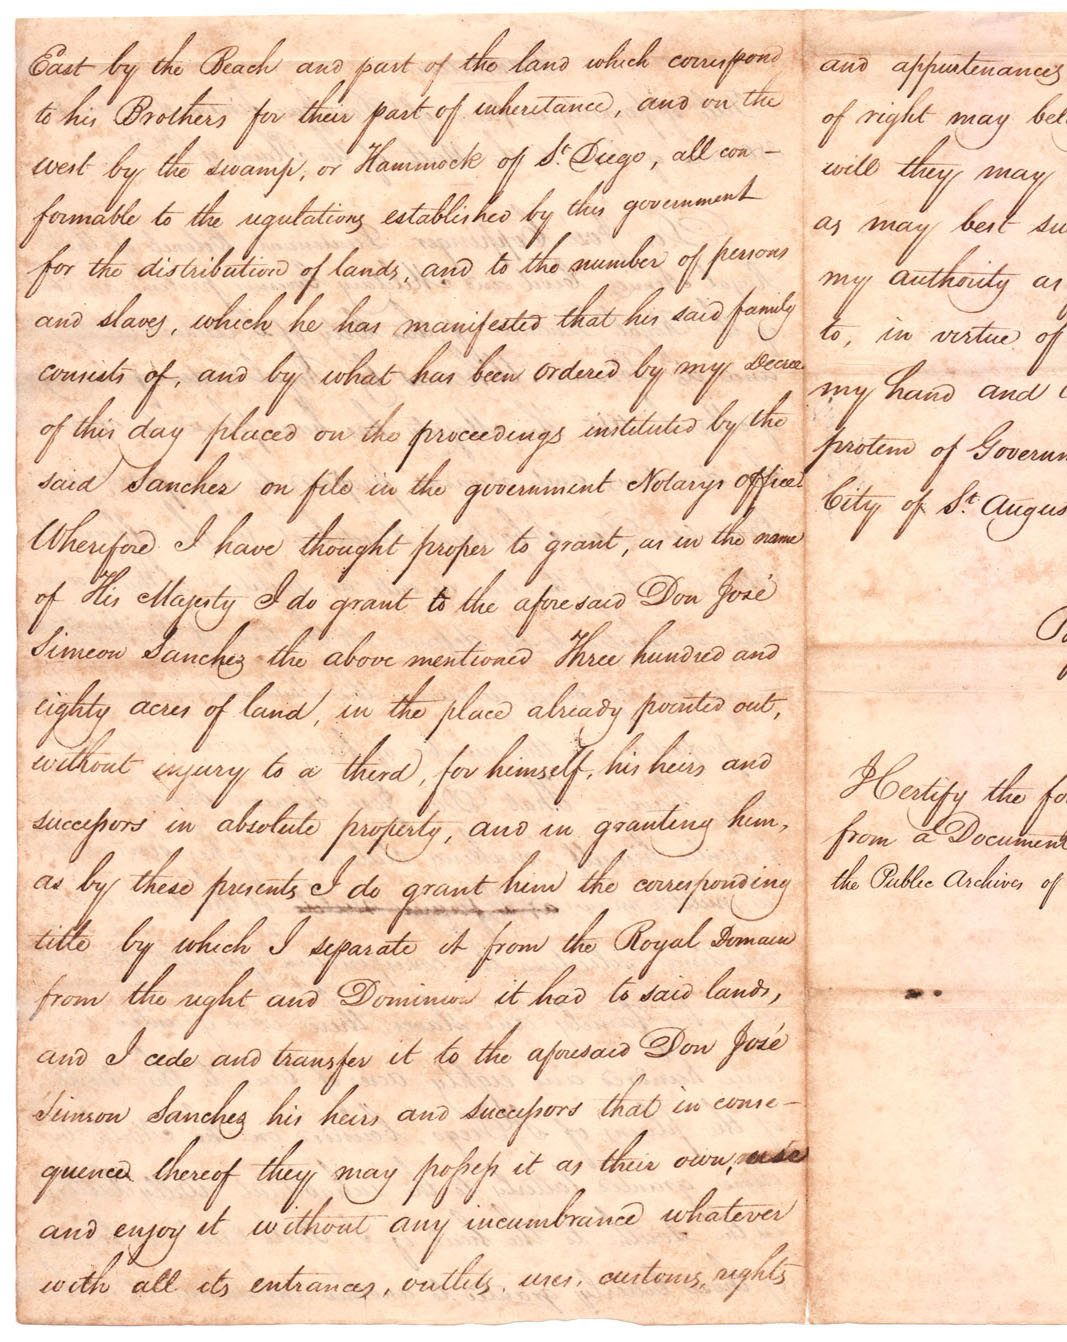 East by the Beach and part of the land which correspond
to his Brothers for their part of inheritance, and on the
west by the swamp, or Hammock of St. Diego, all con-
formable to the regulations established by this government
for the distribution of lands, and to the number of persons
and slaves, which he has manifested that his said family
consists of, and by what has been ordered by my Decree
of this day placed on the proceedings instituted by the
said Sanchez on file in the government Notarys office.
Wherefore I have thought proper to grant, as in the name
of His Majesty I do grant to the aforesaid Don José
Simeon Sanchez the above mentioned Three hundred and
eighty acres of land, in the place already pointed out,
without injury to a third, for himself, his heirs and
successors in absolute property, and in granting him,
as by these presents I do grant him the corresponding
title by which I separate it from the Royal Domain
from the right and Dominion it had to said lands,
and I cede and transfer it to the aforesaid Don José
Simeon Sanchez his heirs and successors that in conse-
quence thereof they may possess it as their own, use
and enjoy it without any incumbrance whatever
with all its entrances, outlets, uses, customs, rights
and appurtenances
of right may bel
will they may
as may best su
my authority as
to, in virtue of
my hand and
protem of Governm
City of St. Augus
I Certify the fo
from a Document
the Public Archives of